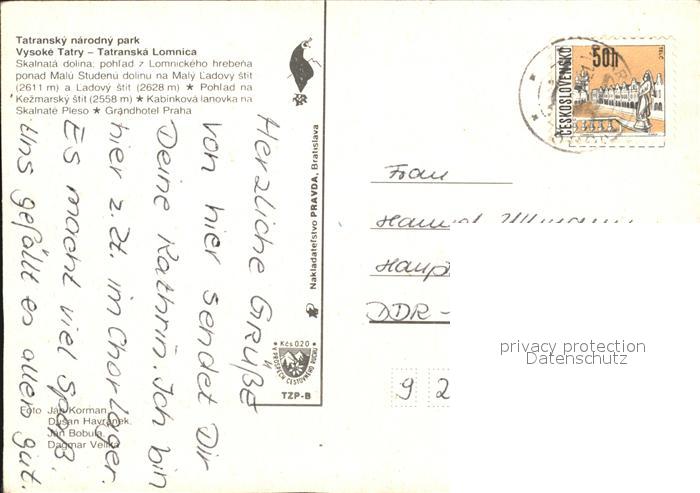 Tatranský národný park
Vysoké Tatry – Tatranská Lomnica
Skalnatá dolina; pohľad z Lomnického hrebeňa
ponad Malú Studenú dolinu na Malý Ľadový štít
(2611 m) a Ľadový štít (2628 m) ★ Pohľad na
Kežmarský štít (2558 m) ★ Kabínková lanovka na
Skalnaté Pleso ★ Grandhotel Praha
Herzliche GRÜßE
von hier sendet Dir
Deine Kathrin. Ich bin
hier z. Zt. im Chorlager.
Es macht viel Spaß.
Uns gefällt es allen gut.
Foto Ján Korman,
Dušan Havránek,
Ján Bobula,
Dagmar Veliká
Nakladateľstvo PRAVDA, Bratislava
Kčs 0,20
V PROSPECH CESTOVNÉHO RUCHU
TZP-B
ČESKOSLOVENSKO
50h
TELČ
Frau
DDR –
9 2
privacy protection
Datenschutz